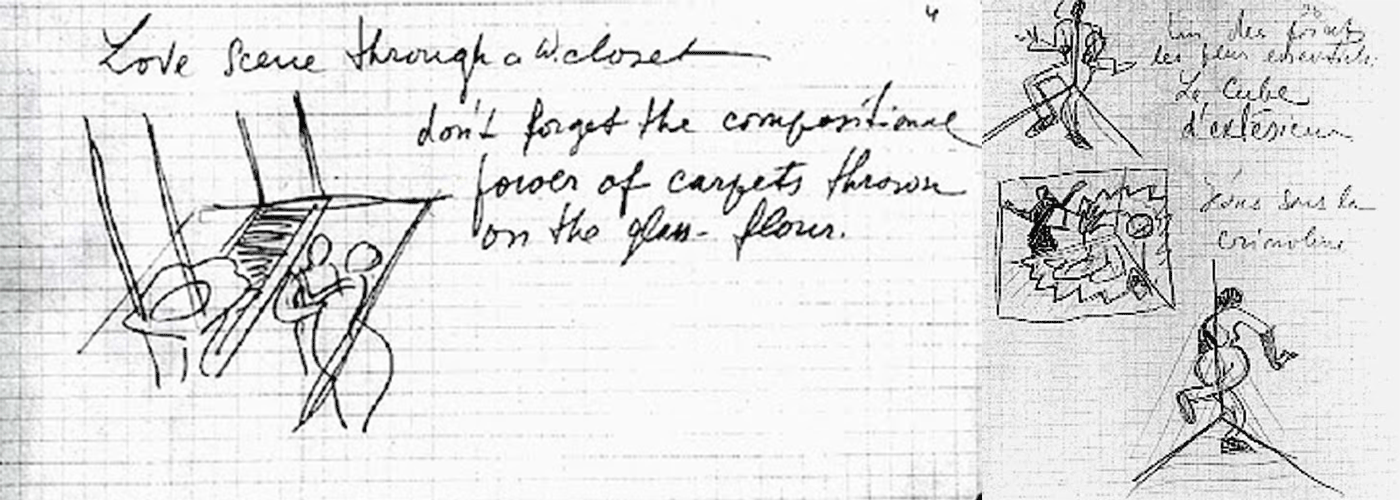 Love Scene through a W. closet
don't forget the compositional
power of carpets thrown
on the glass- flour.
4
Un des points
les plus essentiels
Le Cube
d'extérieur
sous la
crinoline